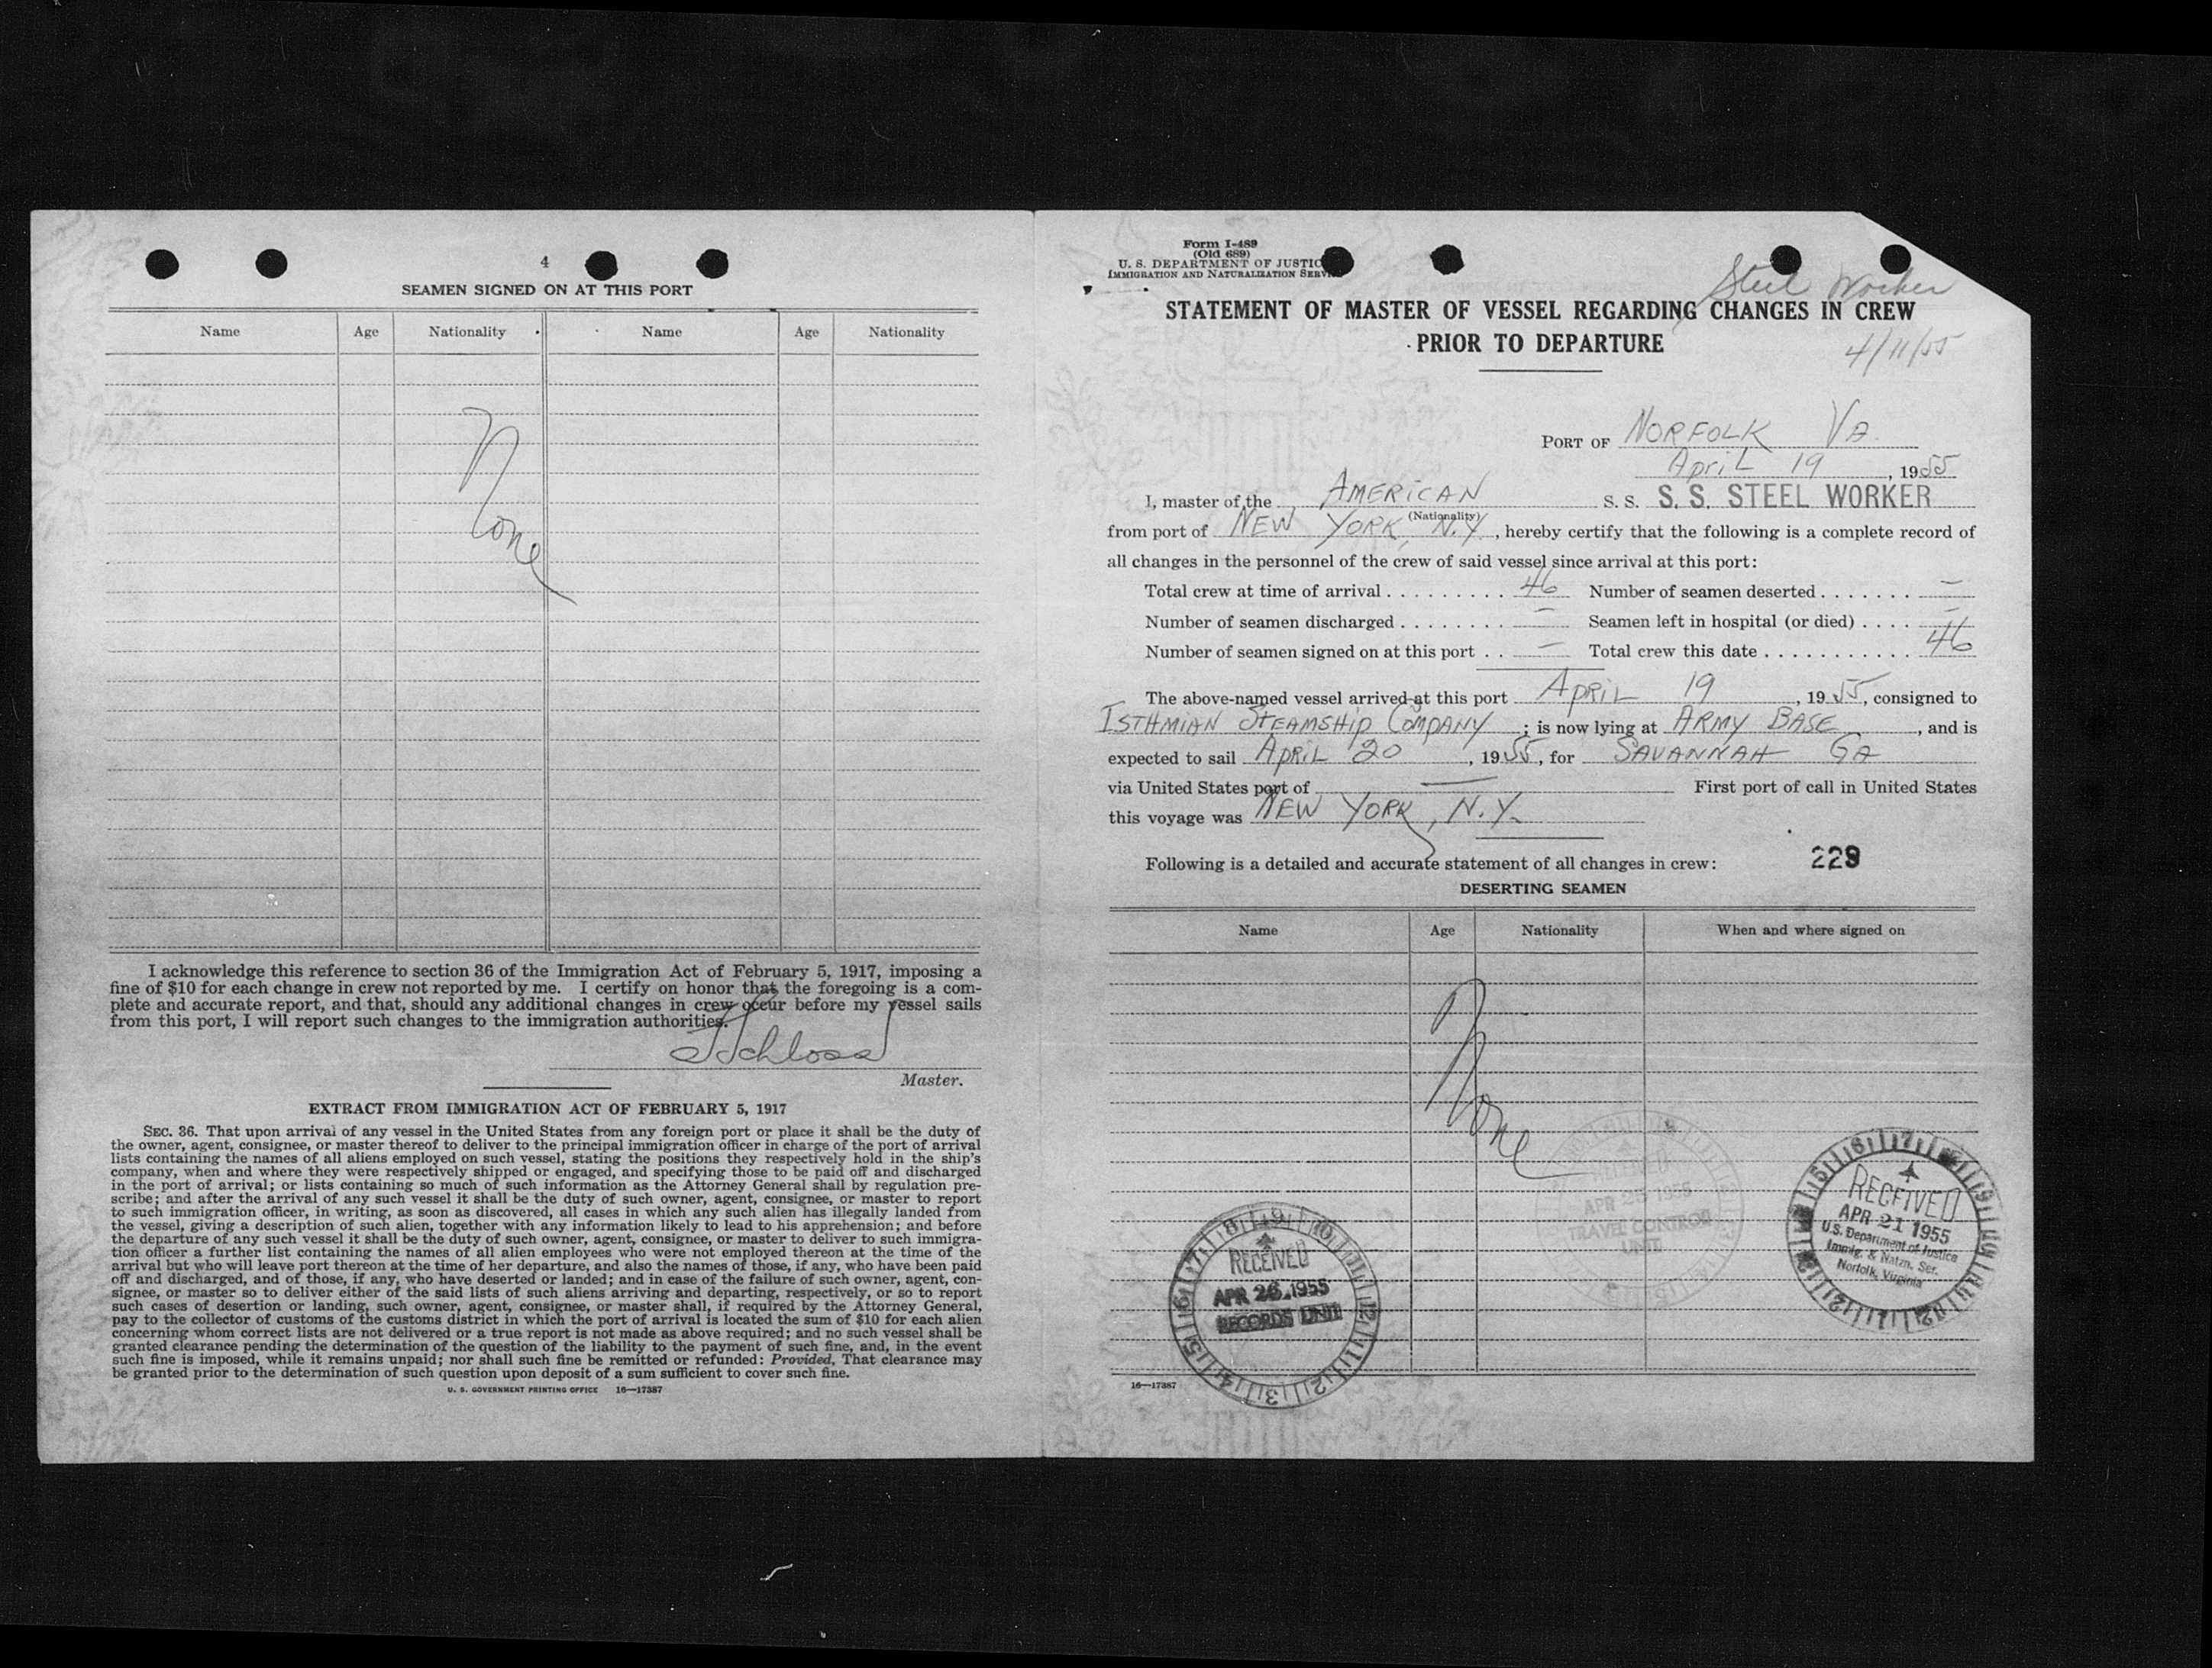 4
SEAMEN SIGNED ON AT THIS PORT
Name Age Nationality Name Age Nationality
None
I acknowledge this reference to section 36 of the Immigration Act of February 5, 1917, imposing a
fine of $10 for each change in crew not reported by me. I certify on honor that the foregoing is a com-
plete and accurate report, and that, should any additional changes in crew occur before my vessel sails
from this port, I will report such changes to the immigration authorities.
Schloss
Master.
EXTRACT FROM IMMIGRATION ACT OF FEBRUARY 5, 1917
SEC. 36. That upon arrival of any vessel in the United States from any foreign port or place it shall be the duty of
the owner, agent, consignee, or master thereof to deliver to the principal immigration officer in charge of the port of arrival
lists containing the names of all aliens employed on such vessel, stating the positions they respectively hold in the ship's
company, when and where they were respectively shipped or engaged, and specifying those to be paid off and discharged
in the port of arrival; or lists containing so much of such information as the Attorney General shall by regulation pre-
scribe; and after the arrival of any such vessel it shall be the duty of such owner, agent, consignee, or master to report
to such immigration officer, in writing, as soon as discovered, all cases in which any such alien has illegally landed from
the vessel, giving a description of such alien, together with any information likely to lead to his apprehension; and before
the departure of any such vessel it shall be the duty of such owner, agent, consignee, or master to deliver to such immigra-
tion officer a further list containing the names of all alien employees who were not employed thereon at the time of the
arrival but who will leave port thereon at the time of her departure, and also the names of those, if any, who have been paid
off and discharged, and of those, if any, who have deserted or landed; and in case of the failure of such owner, agent, con-
signee, or master so to deliver either of the said lists of such aliens arriving and departing, respectively, or so to report
such cases of desertion or landing, such owner, agent, consignee, or master shall, if required by the Attorney General,
pay to the collector of customs of the customs district in which the port of arrival is located the sum of $10 for each alien
concerning whom correct lists are not delivered or a true report is not made as above required; and no such vessel shall be
granted clearance pending the determination of the question of the liability to the payment of such fine, and, in the event
such fine is imposed, while it remains unpaid; nor shall such fine be remitted or refunded: Provided, That clearance may
be granted prior to the determination of such question upon deposit of a sum sufficient to cover such fine.
U. S. GOVERNMENT PRINTING OFFICE 16—17387
Form I-489
(Old 689)
U. S. DEPARTMENT OF JUSTIC
IMMIGRATION AND NATURALIZATION SERV
Steel Worker
STATEMENT OF MASTER OF VESSEL REGARDING CHANGES IN CREW
PRIOR TO DEPARTURE
4/11/55
PORT OF NORFOLK VA.
APRIL 19, 1955
I, master of the AMERICAN S. S. S. S. STEEL WORKER
(Nationality)
from port of NEW YORK, N.Y., hereby certify that the following is a complete record of
all changes in the personnel of the crew of said vessel since arrival at this port:
Total crew at time of arrival . . . . . . . . . 46 Number of seamen deserted . . . . . . . —
Number of seamen discharged . . . . . . . . — Seamen left in hospital (or died) . . . . —
Number of seamen signed on at this port . . — Total crew this date . . . . . . . . . . . 46
The above-named vessel arrived at this port APRIL 19, 1955, consigned to
ISTHMIAN STEAMSHIP COMPANY; is now lying at ARMY BASE, and is
expected to sail APRIL 20, 1955, for SAVANNAH GA
via United States port of — First port of call in United States
this voyage was NEW YORK, N.Y.
Following is a detailed and accurate statement of all changes in crew: 229
DESERTING SEAMEN
Name Age Nationality When and where signed on
None
RECEIVED
APR 25 1955
TRAVEL CONTROL
UNIT
RECEIVED
APR 21 1955
U.S. Department of Justice
Immig. & Natzn. Ser.
Norfolk, Virginia
RECEIVED
APR 26 1955
RECORDS UNIT
16—17387